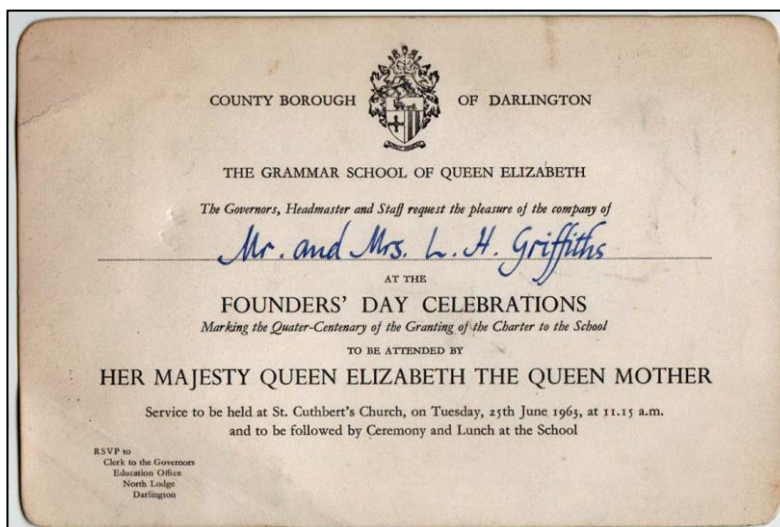 COUNTY BOROUGH OF DARLINGTON
THE GRAMMAR SCHOOL OF QUEEN ELIZABETH
The Governors, Headmaster and Staff request the pleasure of the company of
Mr. and Mrs. L. H. Griffiths
AT THE
FOUNDERS' DAY CELEBRATIONS
Marking the Quater-Centenary of the Granting of the Charter to the School
TO BE ATTENDED BY
HER MAJESTY QUEEN ELIZABETH THE QUEEN MOTHER
Service to be held at St. Cuthbert's Church, on Tuesday, 25th June 1963, at 11.15 a.m.
and to be followed by Ceremony and Lunch at the School
RSVP to
Clerk to the Governors
Education Office
North Lodge
Darlington